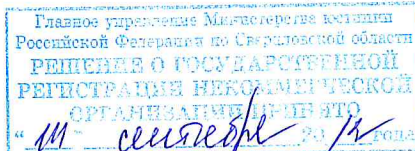 Главное управление Министерства юстиции
Российской Федерации по Свердловской области
РЕШЕНИЕ О ГОСУДАРСТВЕННОЙ
РЕГИСТРАЦИИ НЕКОММЕРЧЕСКОЙ
ОРГАНИЗАЦИИ ПРИНЯТО
" " сентября 20 12 года